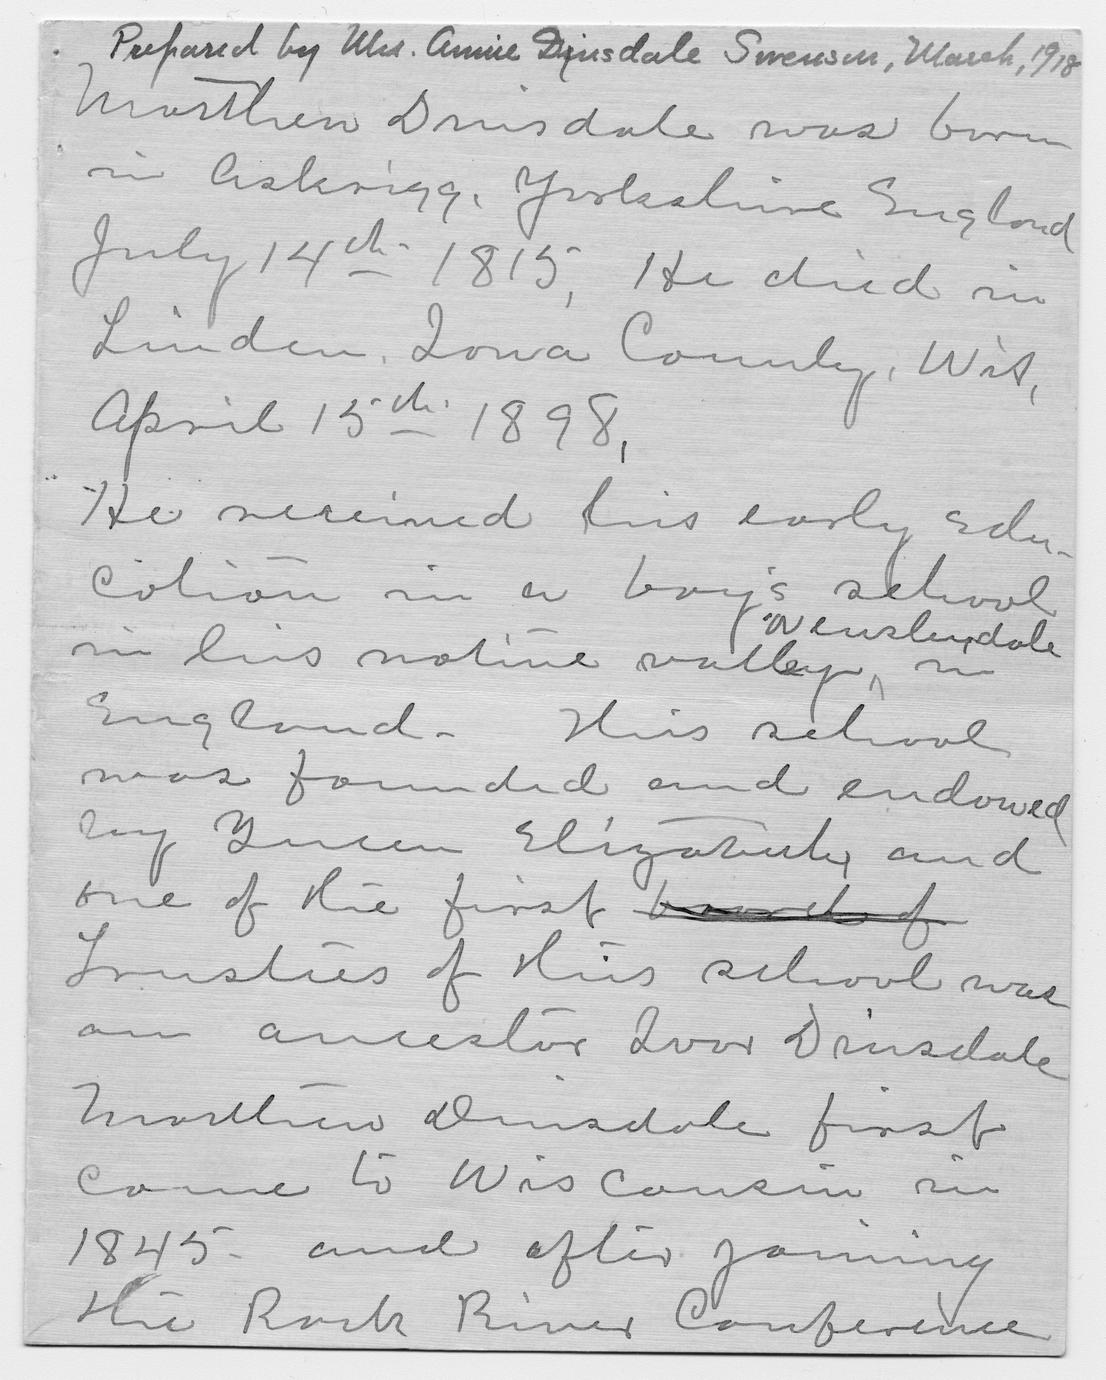 Prepared by Mrs. Annie Dinsdale Swenson, March, 1918
Matthew Dinsdale was born
in Askrigg, Yorkshire England
July 14th 1815, He died in
Linden, Iowa County, Wis,
April 15th 1898,
He received his early edu-
cation in a boy's school
in his native valley, Wensleydale in
England- This school
was founded and endowed
by Queen Elizabeth, and
one of the first board of
Trustees of this school was
an ancestor Ivor Dinsdale
Matthew Dinsdale first
came to Wisconsin in
1845- and after joining
the Rock River Conference